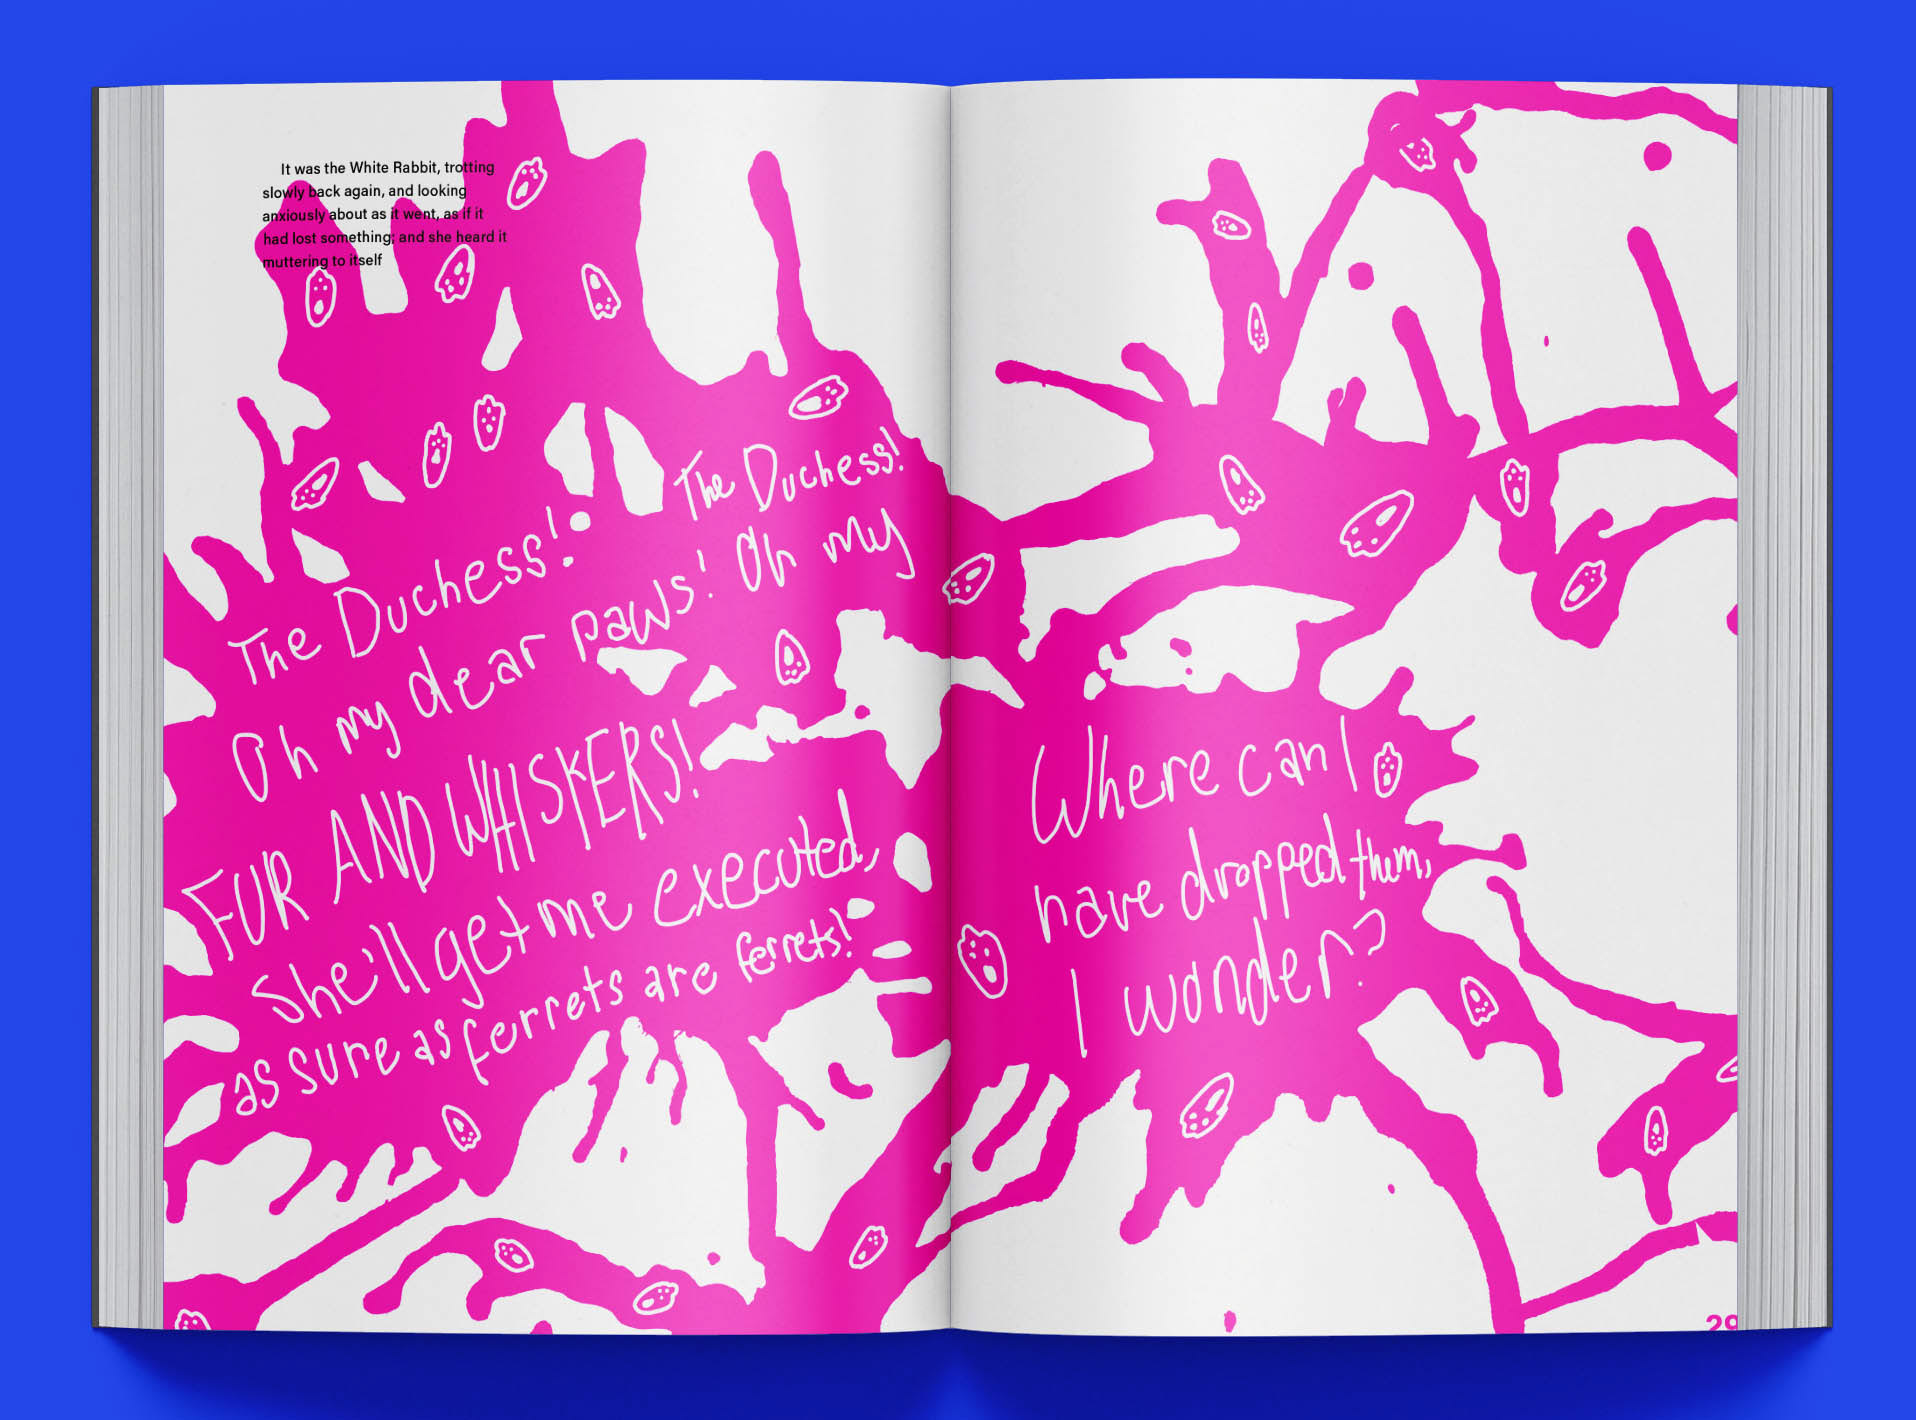 It was the White Rabbit, trotting
slowly back again, and looking
anxiously about as it went, as if it
had lost something; and she heard it
muttering to itself
The Duchess! The Duchess!
Oh my dear paws! Oh my
FUR AND WHISKERS!
She'll get me executed,
as sure as ferrets are ferrets!
Where can I
have dropped them,
I wonder?
29